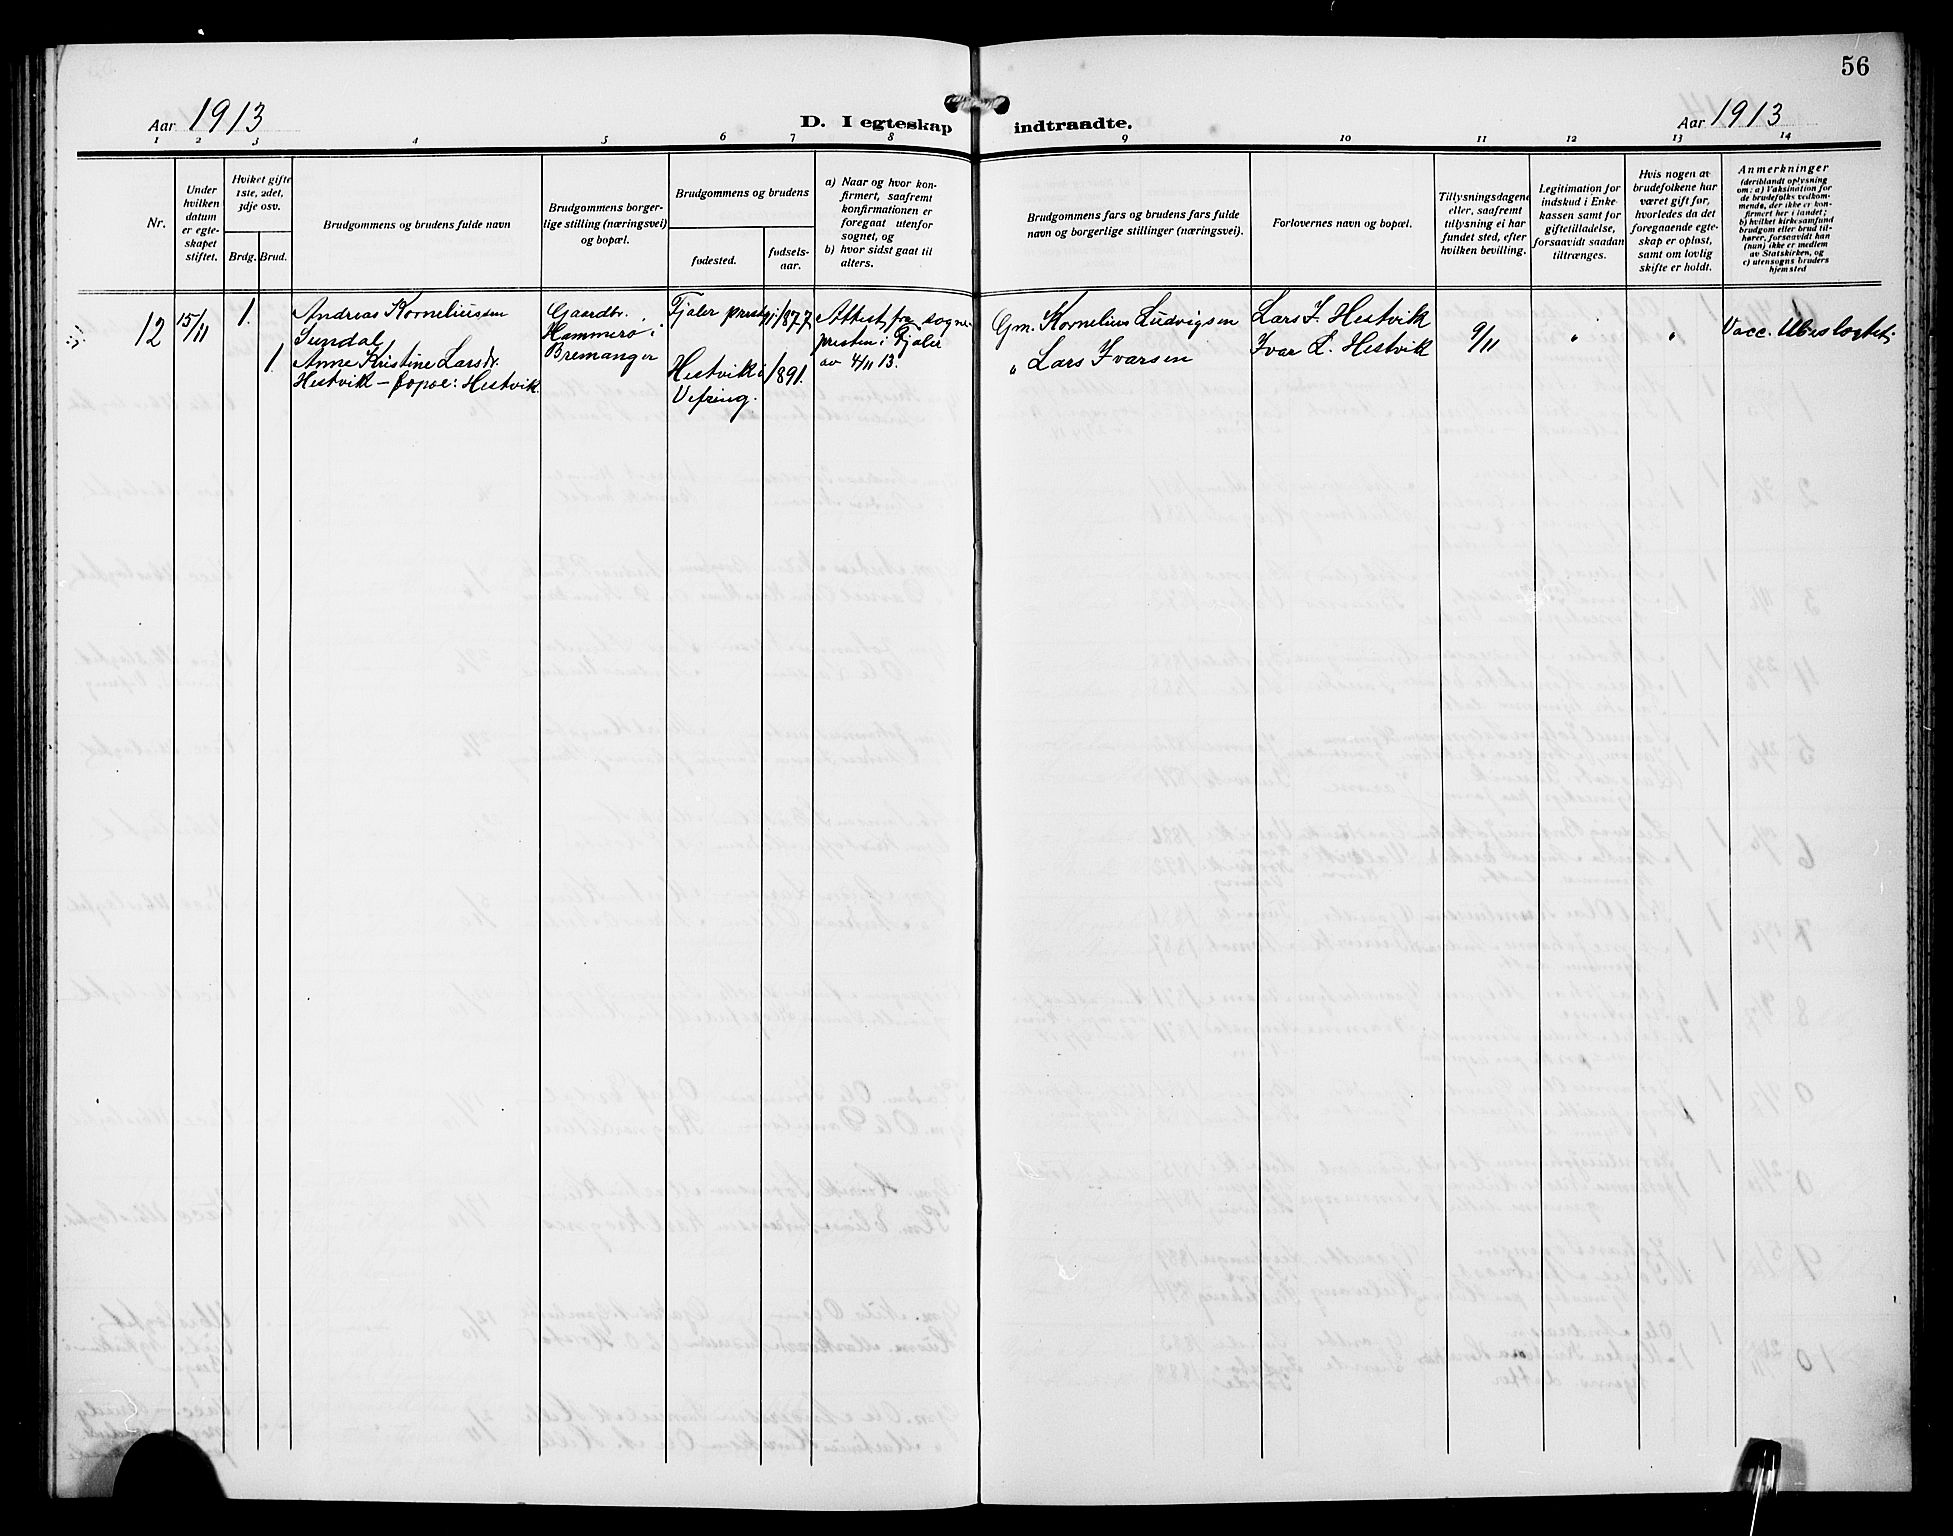 56
Aar 1913
D. I egteskap indtraadte.
Aar 1913
1 2 3 4 5 6 7 8 9 10 11 12 13 14
Nr.
Under
hvilken
datum
er egte-
skapet
stiftet.
Hvilket gifte
1ste, 2det,
3dje osv.
Brdg. Brud.
Brudgommens og brudens fulde navn
Brudgommens borger-
lige stilling (næringsvei)
og bopæl.
Brudgommens og brudens
fødested.
fødsels-
aar.
a) Naar og hvor kon-
firmert, saafremt
konfirmationen er
foregaat utenfor
sognet, og
b) hvor sidst gaat til
alters.
Brudgommens fars og brudens fars fulde
navn og borgerlige stillinger (næringsvei).
Forlovernes navn og bopæl.
Tillysningsdagene
eller, saafremt
tillysning ei har
fundet sted, efter
hvilken bevilling.
Legitimation for
indskud i Enke-
kassen samt for
giftetilladelse,
forsaavidt saadan
tiltrænges.
Hvis nogen av
brudefolkene har
været gift før,
hvorledes da det
foregaaende egte-
skap er opløst,
samt om lovlig
skifte er holdt.
Anmerkninger
(deriblandt oplysning
om: a) Vaksination for
de brudefolks vedkom-
mende, der ikke er kon-
firmert her i landet;
b) hvilket kirkesamfund
brudgom eller brud til-
hører, forsaavidt han
(hun) ikke er medlem
av Statskirken, og
c) utensogns bruders
hjemsted
12
15/11
1.
Andreas Korneliussen
Sundal
1.
Anne Kristine Larsdr.
Hestvik – bopæl: Hestvik.
Gaardbr.
Hammerø i
Bremanger
Fjaler prestgj.
1877
Hestvik i
Vefring.
1891.
Attest fra sogne-
presten i Fjaler
av 4/11 13.
Gm. Kornelius Ludvigsen
" Lars Ivarsen
Lars I. Hestvik
Ivar L. Hestvik
9/11
"
"
Vacc. Ubeslogtet.